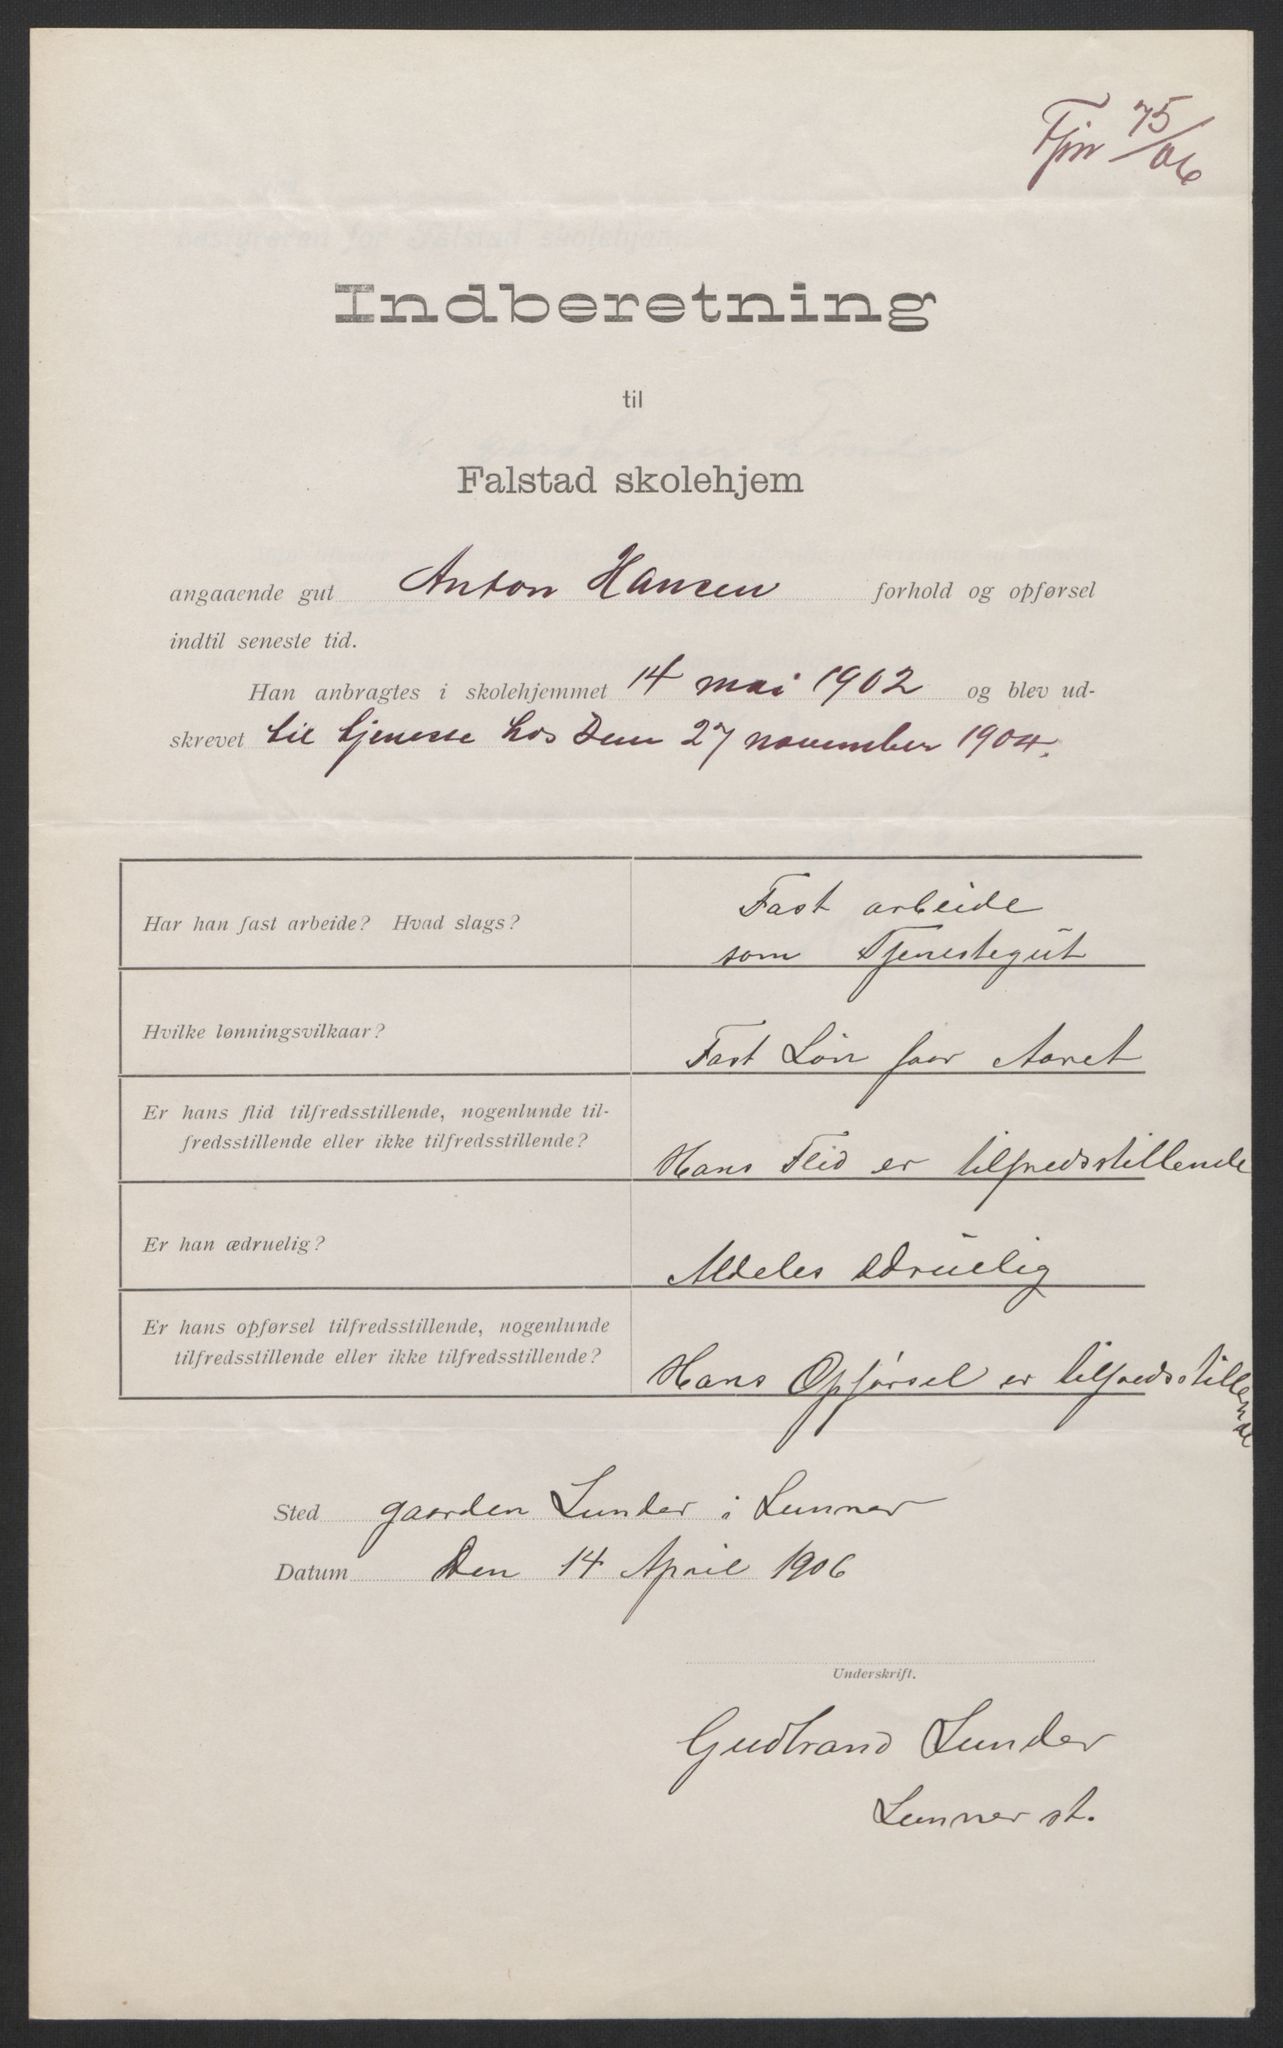 Fjnr 75/06
Indberetning
til
Falstad skolehjem
angaaende gut Anton Hansen forhold og opførsel
indtil seneste tid.
Han anbragtes i skolehjemmet 14 mai 1902 og blev ud-
skrevet til tjeneste hos Dem 27 november 1904.
Har han fast arbeide? Hvad slags?
Fast arbeide
som Tjenestegut
Hvilke lønningsvilkaar?
Fast Løn for Aaret
Er hans flid tilfredsstillende, nogenlunde til-
fredsstillende eller ikke tilfredsstillende?
Hans Flid er tilfredsstillende
Er han ædruelig?
Aldeles ædruelig
Er hans opførsel tilfredsstillende, nogenlunde
tilfredsstillende eller ikke tilfredsstillende?
Hans Opførsel er tilfredsstillende
Sted gaarden Lunder i Lunner
Datum Den 14 April 1906
Underskrift.
Gudbrand Lunder
Lunner st.